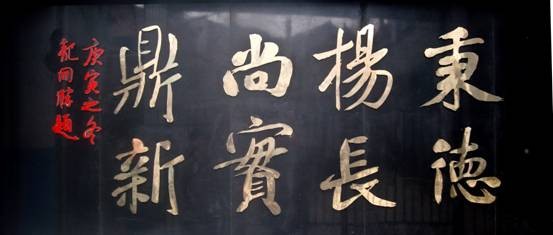 秉德
楊長
尚實
鼎新
庚寅之冬
龍開勝題